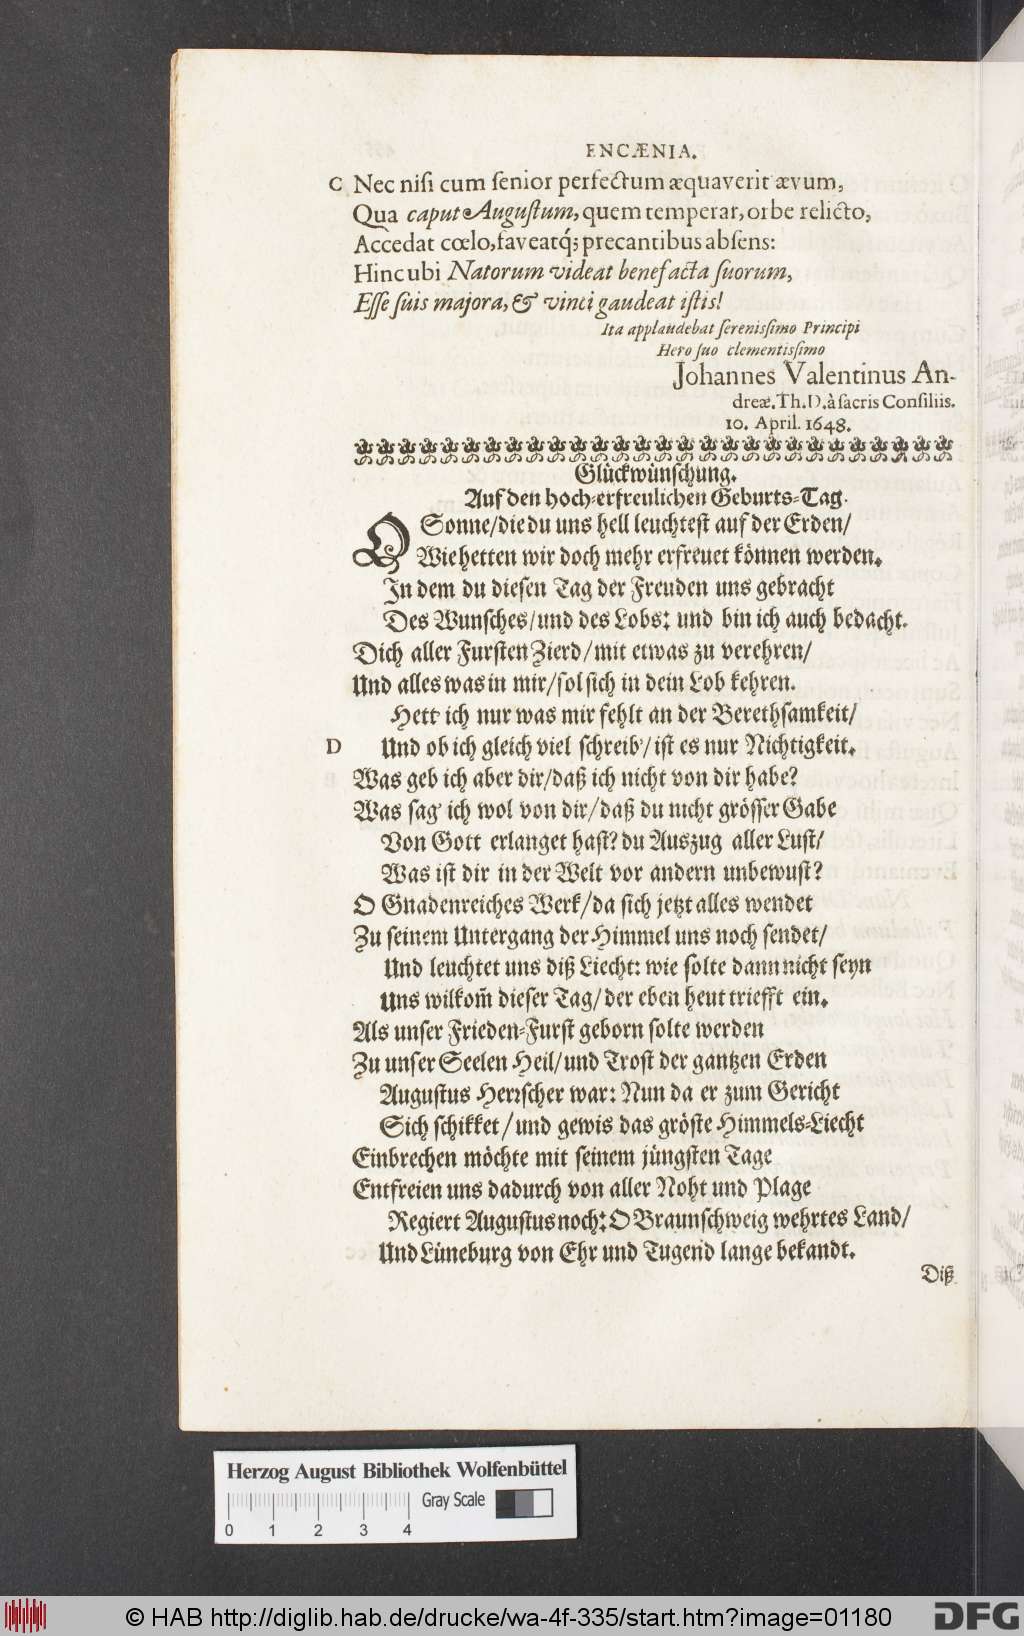 ENCÆNIA.
C Nec nisi cum senior perfectum æquaverit ævum,
Qua caput Augustum, quem temperat, orbe relicto,
Accedat cœlo, faveatq́; precantibus absens:
Hinc ubi Natorum videat benefacta suorum,
Esse suis majora, & vinci gaudeat istis!
Ita applaudebat serenissimo Principi
Hero suo clementissimo
Johannes Valentinus An-
dreæ. Th. D. à sacris Consiliis.
10. April. 1648.
Glückwünschung.
Auf den hoch-erfreulichen Geburts-Tag.
O Sonne/die du uns hell leuchtest auf der Erden/
Wie hetten wir doch mehr erfreuet können werden.
In dem du diesen Tag der Freuden uns gebracht
Des Wunsches/und des Lobs: und bin ich auch bedacht.
Dich aller Fursten Zierd/mit etwas zu verehren/
Und alles was in mir/sol sich in dein Lob kehren.
Hett ich nur was mir fehlt an der Berethsamkeit/
D Und ob ich gleich viel schreib'/ist es nur Nichtigkeit.
Was geb ich aber dir/daß ich nicht von dir habe?
Was sag' ich wol von dir/daß du nicht grösser Gabe
Von Gott erlanget hast? du Auszug aller Lust/
Was ist dir in der Welt vor andern unbewust?
O Gnadenreiches Werk/da sich jetzt alles wendet
Zu seinem Untergang der Himmel uns noch sendet/
Und leuchtet uns diß Liecht: wie solte dann nicht seyn
Uns wilkom̃ dieser Tag/der eben heut triefft ein.
Als unser Frieden-Furst geborn solte werden
Zu unser Seelen Heil/und Trost der gantzen Erden
Augustus Herrscher war: Nun da er zum Gericht
Sich schikket/und gewis das gröste Himmels-Liecht
Einbrechen möchte mit seinem jüngsten Tage
Entfreien uns dadurch von aller Noht und Plage
Regiert Augustus noch: O Braunschweig wehrtes Land/
Und Lüneburg von Ehr und Tugend lange bekandt.
Diß
Herzog August Bibliothek Wolfenbüttel
Gray Scale
0 1 2 3 4
© HAB http://diglib.hab.de/drucke/wa-4f-335/start.htm?image=01180
DFG